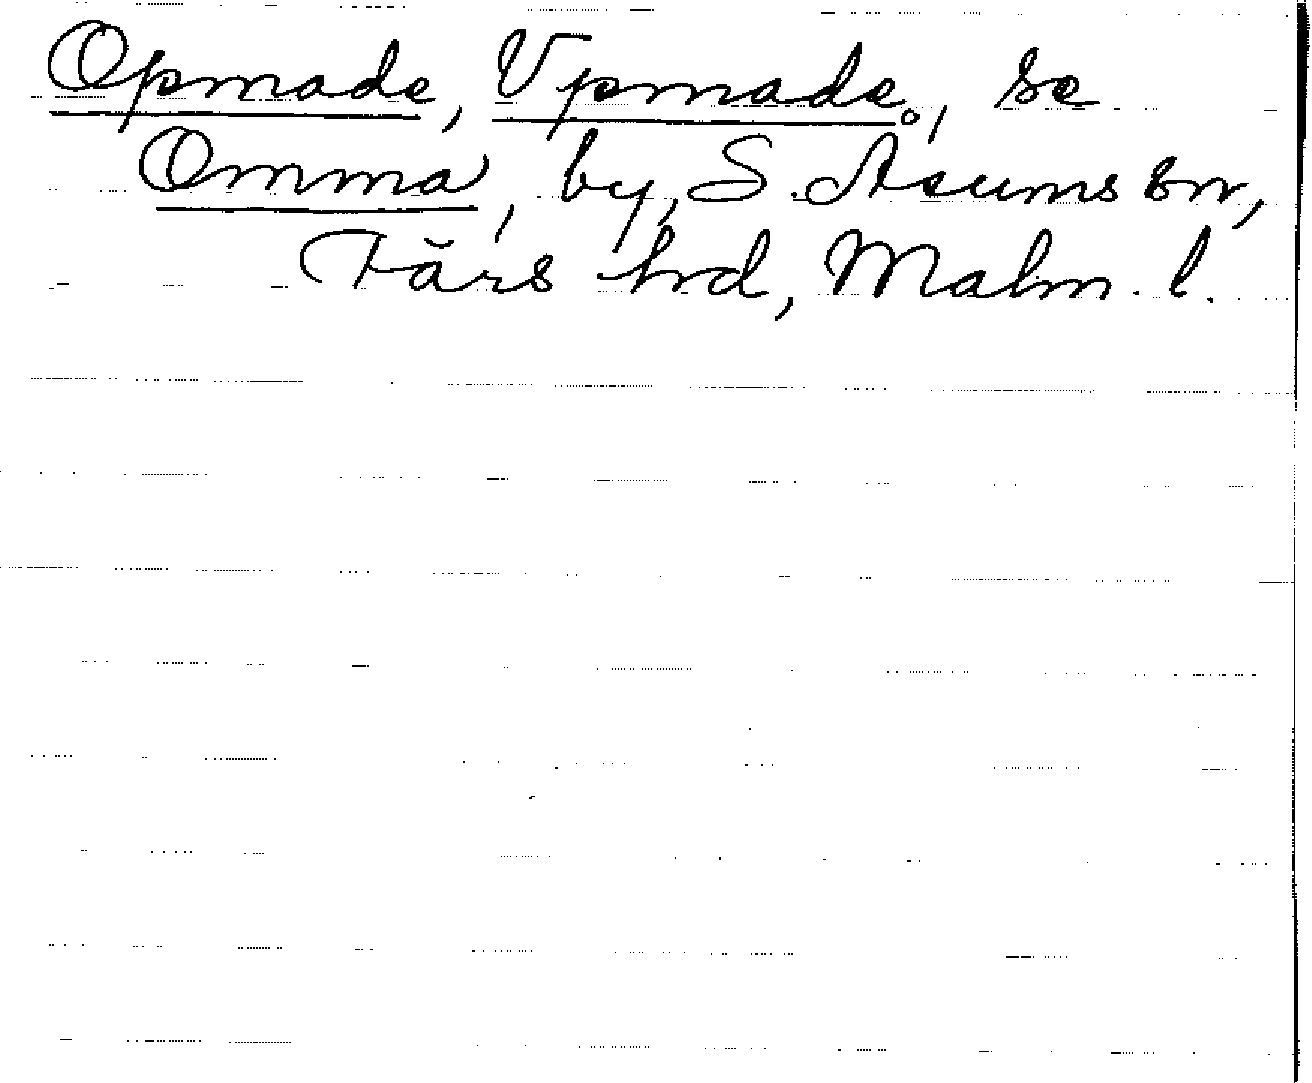 Opmade, Vpmade., se
Omma, by, S. Åsums sn,
Färs hd, Malm. l.